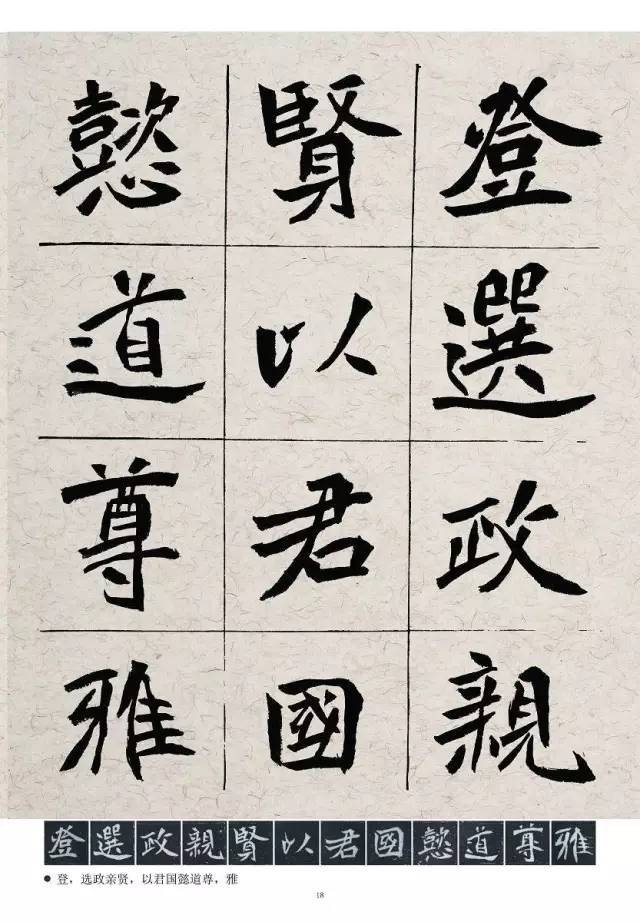 登選政親
賢以君國
懿道尊雅
登選政親賢以君國懿道尊雅
● 登，选政亲贤，以君国懿道尊，雅
18